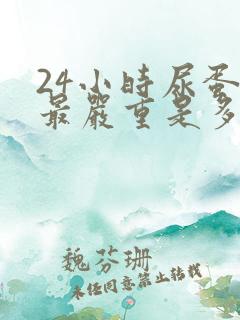 24小時尿蛋
最嚴重是多
魏芬珊
未任同意禁止转载